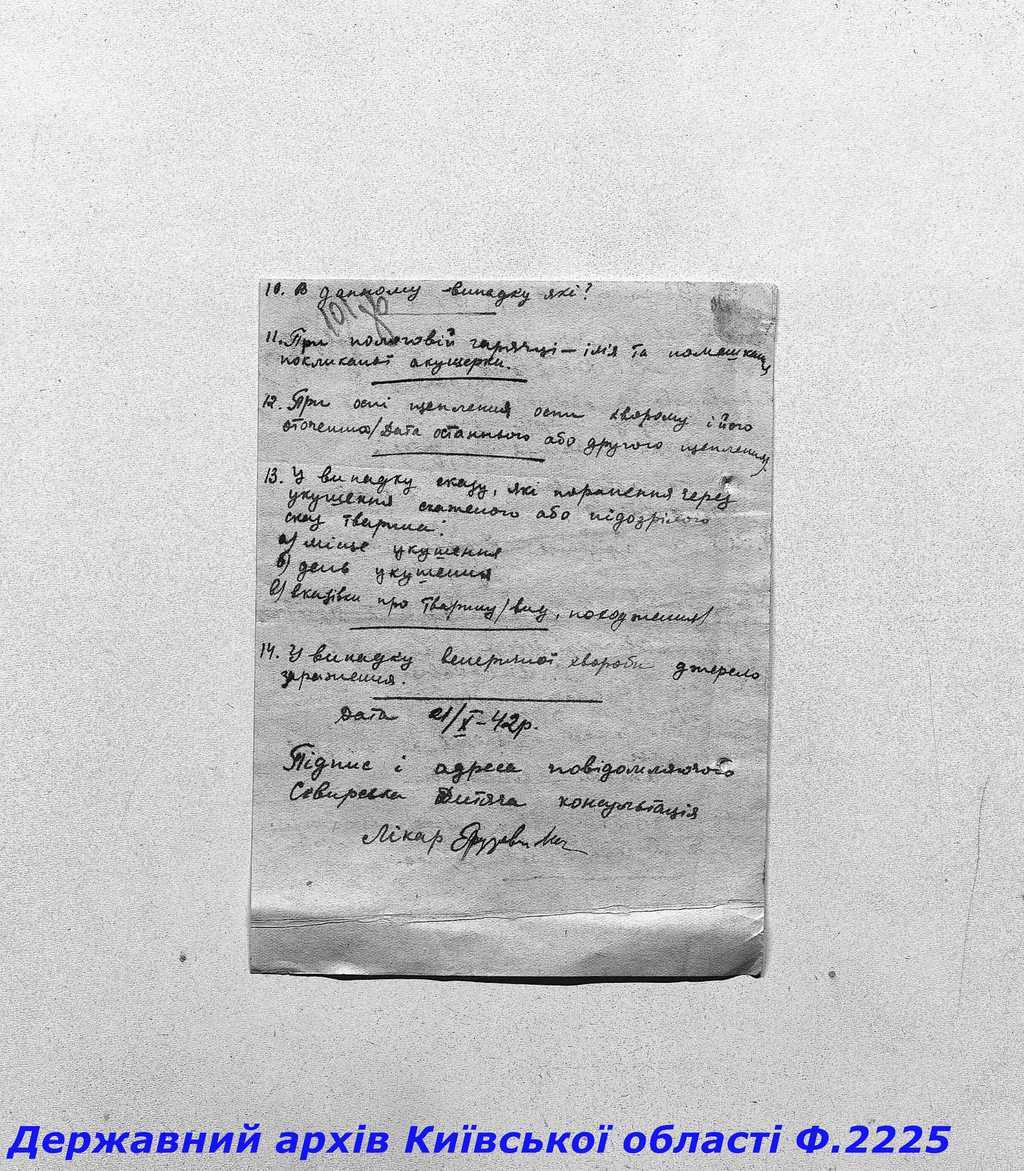 10. В данному випадку які?
101 зв
11. При пологовій гарячці — ім'я та помешкання
покликаної акушерки.
12. При оспі щеплення оспи хворому і його
оточенню/Дата останнього або другого щеплення/.
13. У випадку сказу, які поранення через
укушення скаженого або підозрілого
сказ тварини:
а) місце укушення
б) день укушення
в) вказівки про тварину/вид, походження/
14. У випадку венеричної хвороби джерело
зараження.
Дата 21/X-42р.
Підпис і адреса повідомляючого
Сквирська Дитяча консультація
Лікар
Державний архів Київської області Ф.2225